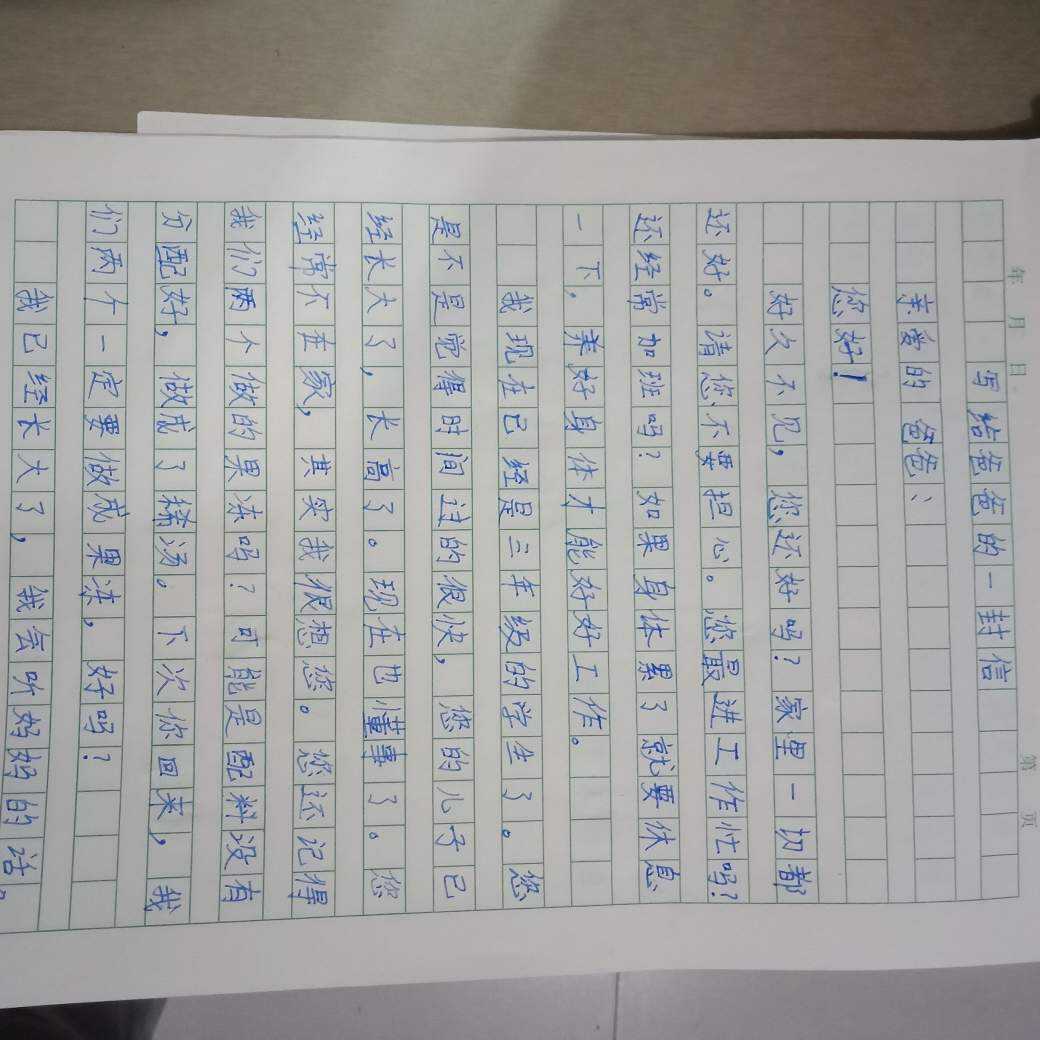 年 月 日
第 页
写给爸爸的一封信
亲爱的爸爸:
您好!
好久不见,您还好吗?家里一切都
还好。请您不要担心。您最进工作忙吗?
还经常加班吗?如果身体累了就要休息
一下,养好身体才能好好工作。
我现在已经是三年级的学生了。您
是不是觉得时间过的很快,您的儿子已
经长大了,长高了。现在也懂事了。您
经常不在家,其实我很想您。您还记得
我们两个做的果冻吗?可能是配料没有
分配好,做成了稀汤。下次你回来,我
们两个一定要做成果冻,好吗?
我已经长大了,我会听妈妈的话。